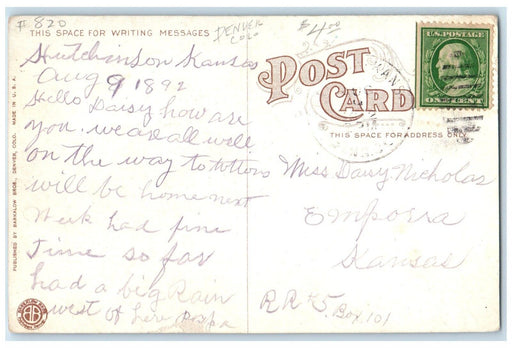 # 820
DENVER
COLO
$4.00
THIS SPACE FOR WRITING MESSAGES
POST
CARD
THIS SPACE FOR ADDRESS ONLY
U.S. POSTAGE
ONE CENT
Hutchinson Kansas
Aug 9 1892
Hello Daisy how are
you. we are all well
on the way to
will be home next
Week had fine
Time so far
had a big Rain
west of here
Miss Daisy Nicholas
Emporra
Kansas
RR #5. Box 101
PUBLISHED BY BARKALOW BROS. DENVER, COLO. MADE IN U.S.A.